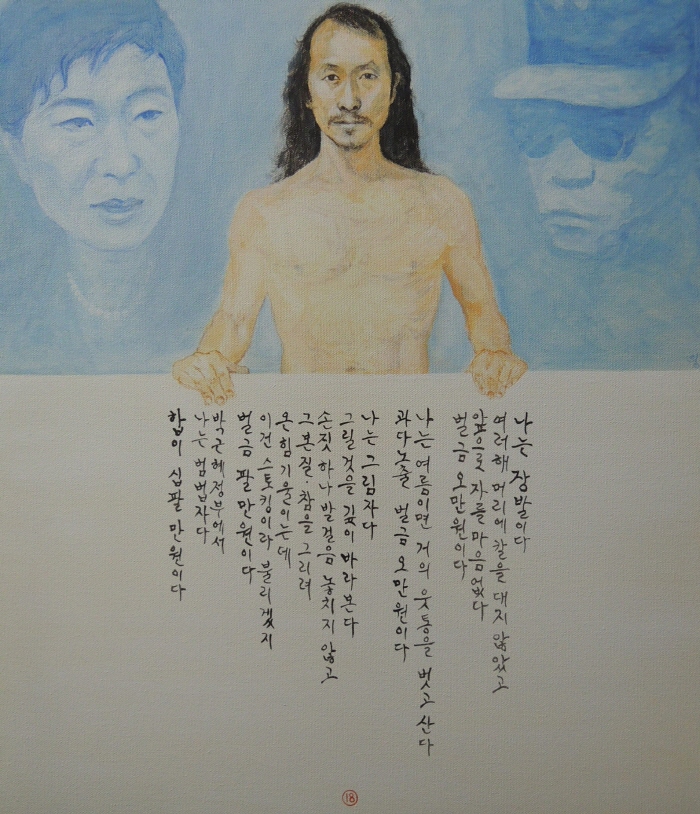 나는 장발이다
여러해 머리에 칼을 대지 않았고
앞으롯 자를 마음 없다
벌금 오만원이다
나는 여름이면 거의 웃통을 벗고 산다
과다노출 벌금 오만원이다
나는 그림자다
그릴 것을 깊이 바라본다
손짓 하나 발걸음 놓치지 않고
그 본질·참을 그리려
온힘 기울이는데
이건 스토킹이라 불리겠지
벌금 팔만원이다
박근혜정부에서
나는 범법자다
합이 십팔만원이다
18